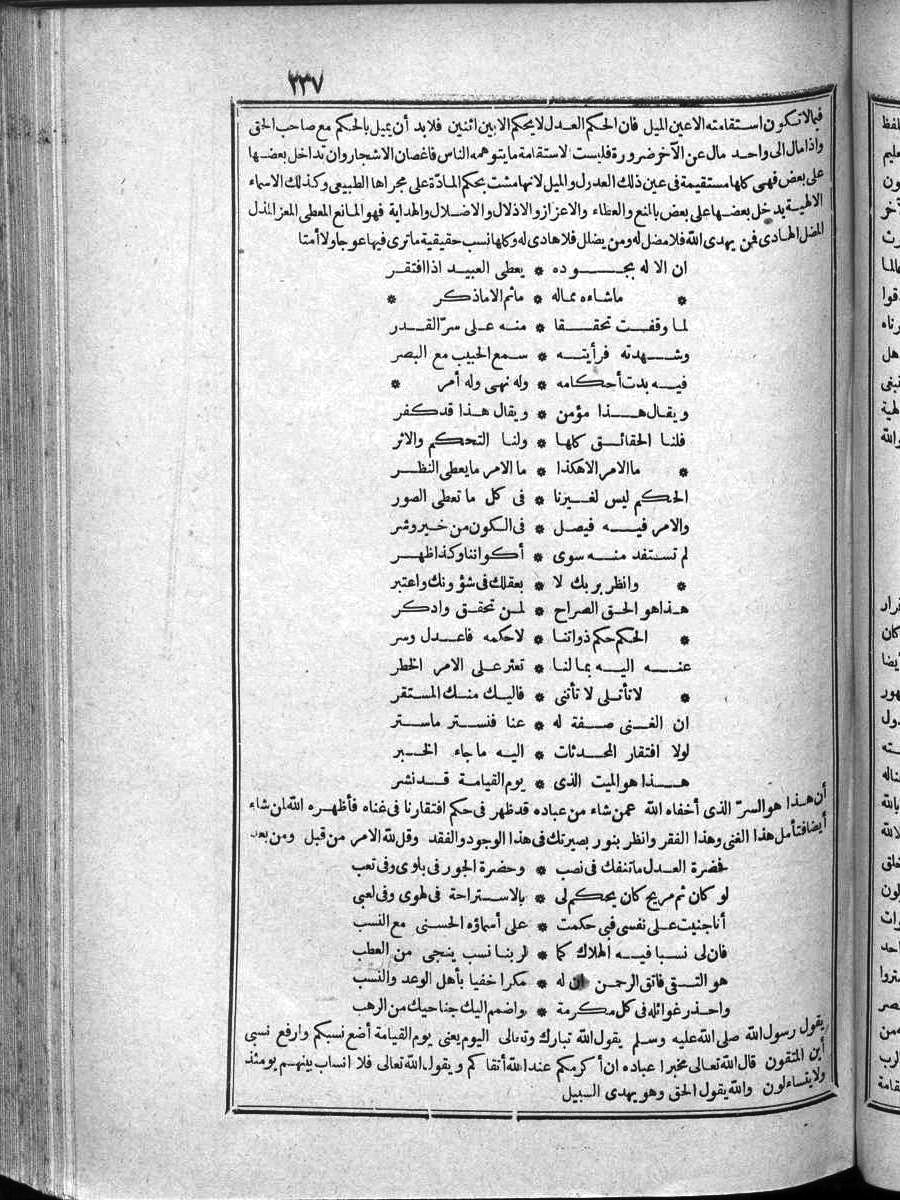 ٢٣٧
فيما لا تكون استقامته الا عين الميل فان الحكم العدل لا يحكم الا بين اثنين فلا بد أن يميل بالحكم مع صاحب الحق
واذا مال الى واحد مال عن الآخر ضرورة فليست الاستقامة ما يتوهمه الناس فاغصان الاشجار وان تداخل بعضها
على بعض فهى كلها مستقيمة فى عين ذلك العدول والميل لانها مشت بحكم المادّة على مجراها الطبيعى وكذلك الاسماء
الالهية يدخل بعضها على بعض بالمنع والعطاء والاعزاز والاذلال والاضلال والهداية فهو المانع المعطى المعز المذل
المضل الهادى فمن يهدى الله فلا مضل له ومن يضلل فلا هادى له وكلها نسب حقيقية ما ترى فيها عوجا ولا أمتا
ان الاله بجوده * يعطى العبيد اذا افتقر
* ماشاءه بماله * ماثم الا ماذكر *
لما وقفت تحققا * منه على سرّ القدر
وشهدته فرأيته * سمع الحبيب مع البصر
فيه بدت أحكامه * وله نهى وله أمر *
ويقال هذا مؤمن * ويقال هذا قد كفر
فلنا الحقائق كلها * ولنا التحكم والاثر
* ما الامر الا هكذا * ما الامر ما يعطى النظر
الحكم ليس لغيرنا * فى كل ما تعطى الصور
والامر فيه فيصل * فى الكون من خير وشر
لم تستفد منه سوى * أكواننا وكذا ظهر
* وانظر بربك لا * بعقلك فى شؤونك واعتبر
هذا هو الحق الصراح * لمن تحقق وادكر
* الحكم حكم ذواتنا * لاحكمه فاعدل وسر
عنه اليه بما لنا * تعثر على الامر الخطر
* لا تأتلى لا تأتنى * فاليك منك المستقر
ان الغنى صفة له * عنا فنستر ماستر
لولا افتقار المحدثات * اليه ماجاء الخبر
هذا هو الميت الذى * يوم القيامة قد نشر
أن هذا هو السرّ الذى أخفاه الله عمن شاء من عباده قد ظهر فى حكم افتقارنا فى غناه فأظهره الله لمن شاء
أيضا فتأمل هذا الغنى وهذا الفقر وانظر بنور بصيرتك فى هذا الوجود والفقد وقل لله الامر من قبل ومن بعد
فحضرة العدل ماتنفك فى نصب * وحضرة الجور فى بلوى وفى تعب
لو كان ثم مريح كان يحكم لى * بالاستراحة فى لهوى وفى لعبى
أنا جنيت على نفسى فبى حكمت * على أسماؤه الحسنى مع النسب
فان لى نسبا فيه الهلاك كما * لربنا نسب ينجى من العطب
هو التقى فاتق الرحمن ان له * مكرا خفيا بأهل الوعد والنسب
واحذر غوائله فى كل مكرمة * واضمم اليك جناحيك من الرهب
يقول رسول الله صلى الله عليه وسلم يقول الله تبارك وتعالى اليوم يعنى يوم القيامة أضع نسبكم وارفع نسبى
أين المتقون قال الله تعالى مخبرا عباده ان أكرمكم عند الله أتقاكم ويقول الله تعالى فلا انساب بينهم يومئذ
ولا يتساءلون والله يقول الحق وهو يهدى السبيل